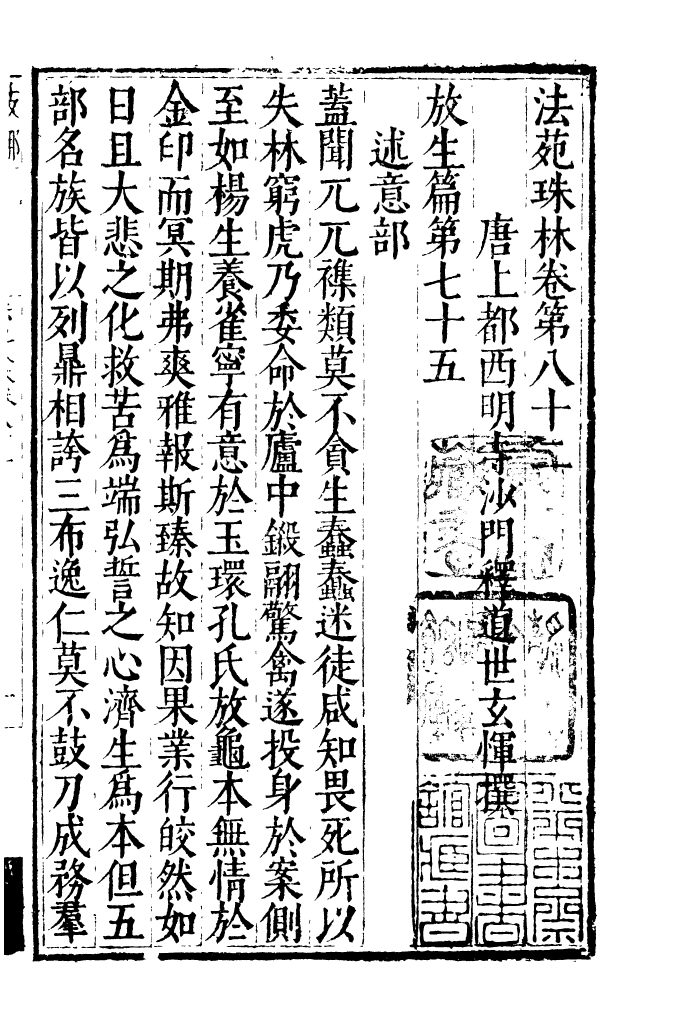 法苑珠林卷第八十二
唐上都西明寺沙門釋道世玄惲撰
放生篇第七十五
述意部
蓋聞兀兀襍類莫不貪生蠢蠢迷徒咸知畏死所以
失林窮虎乃委命於廬中鎩翮驚禽遂投身於案側
至如楊生養雀寧有意於玉環孔氏放龜本無情於
金印而冥期弗爽雅報斯臻故知因果業行皎然如
日且大悲之化救苦爲端弘誓之心濟生爲本但五
部名族皆以列鼎相誇三布逸仁莫不鼓刀成務羣